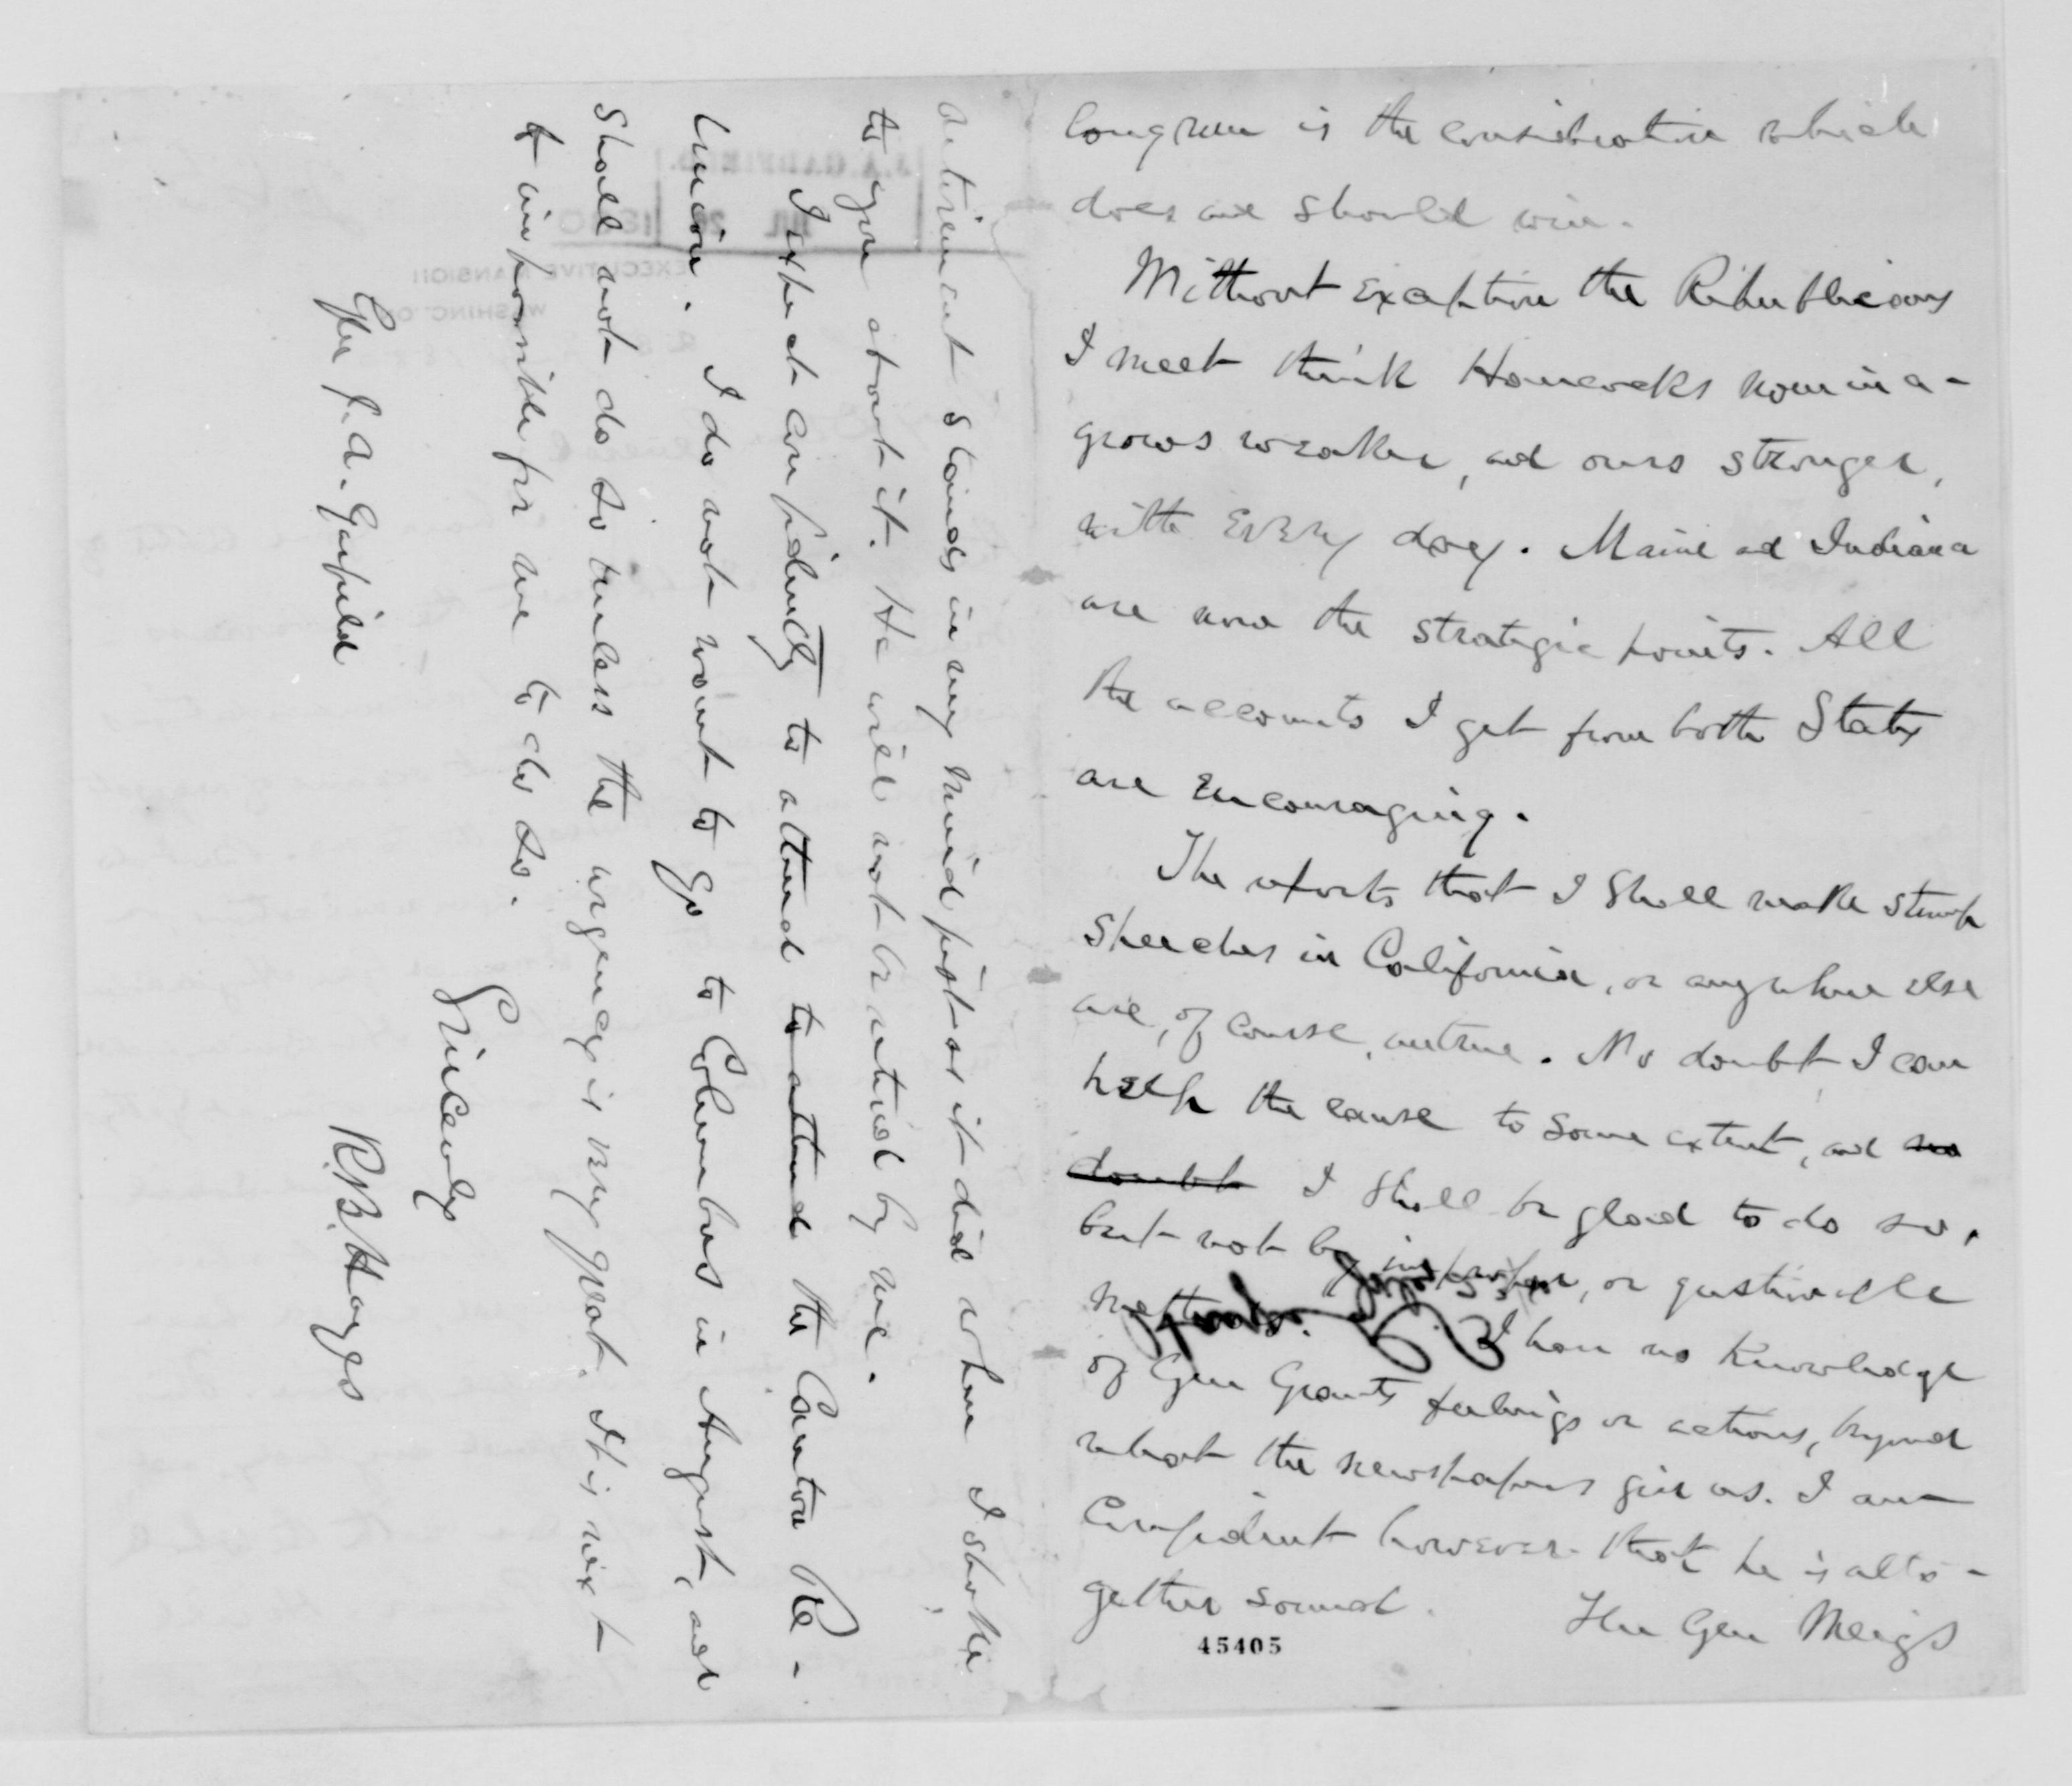 Congress is the consideration which
does and should win.
Without exception the Republicans
I meet think Hancocks nomina-
grows weaker, and ours stronger,
with every day. Maine and Indiana
are now the strategic points. All
the accounts I get from both States
are encouraging.
The reports that I shall make stump
speeches in California, or anywhere else
are, of course, untrue. No doubt I can
help the cause to some extent, and no
doubt I shall be glad to do so,
but not by improper, or questionable
methods. I have no knowledge
of Gen Grants feelings or actions, beyond
what the newspapers give us. I am
confident however that he is alto-
gether sound. The Gen Meigs
45405
retirement stands in my mind just as it did when I spoke
to you about it. He will not be retired by me.
I expect confidently to attend to attend the Canton Re-
union. I do not want to go to Columbus in August, and
shall not do so unless the urgency is very great. It is next
to impossible for me to do so.
Sincerely
R. B. Hayes
Gen J. A. Garfield
J.A. GARFIELD.
JUL 26 1880
EXECUTIVE MANSION
WASHINGTON